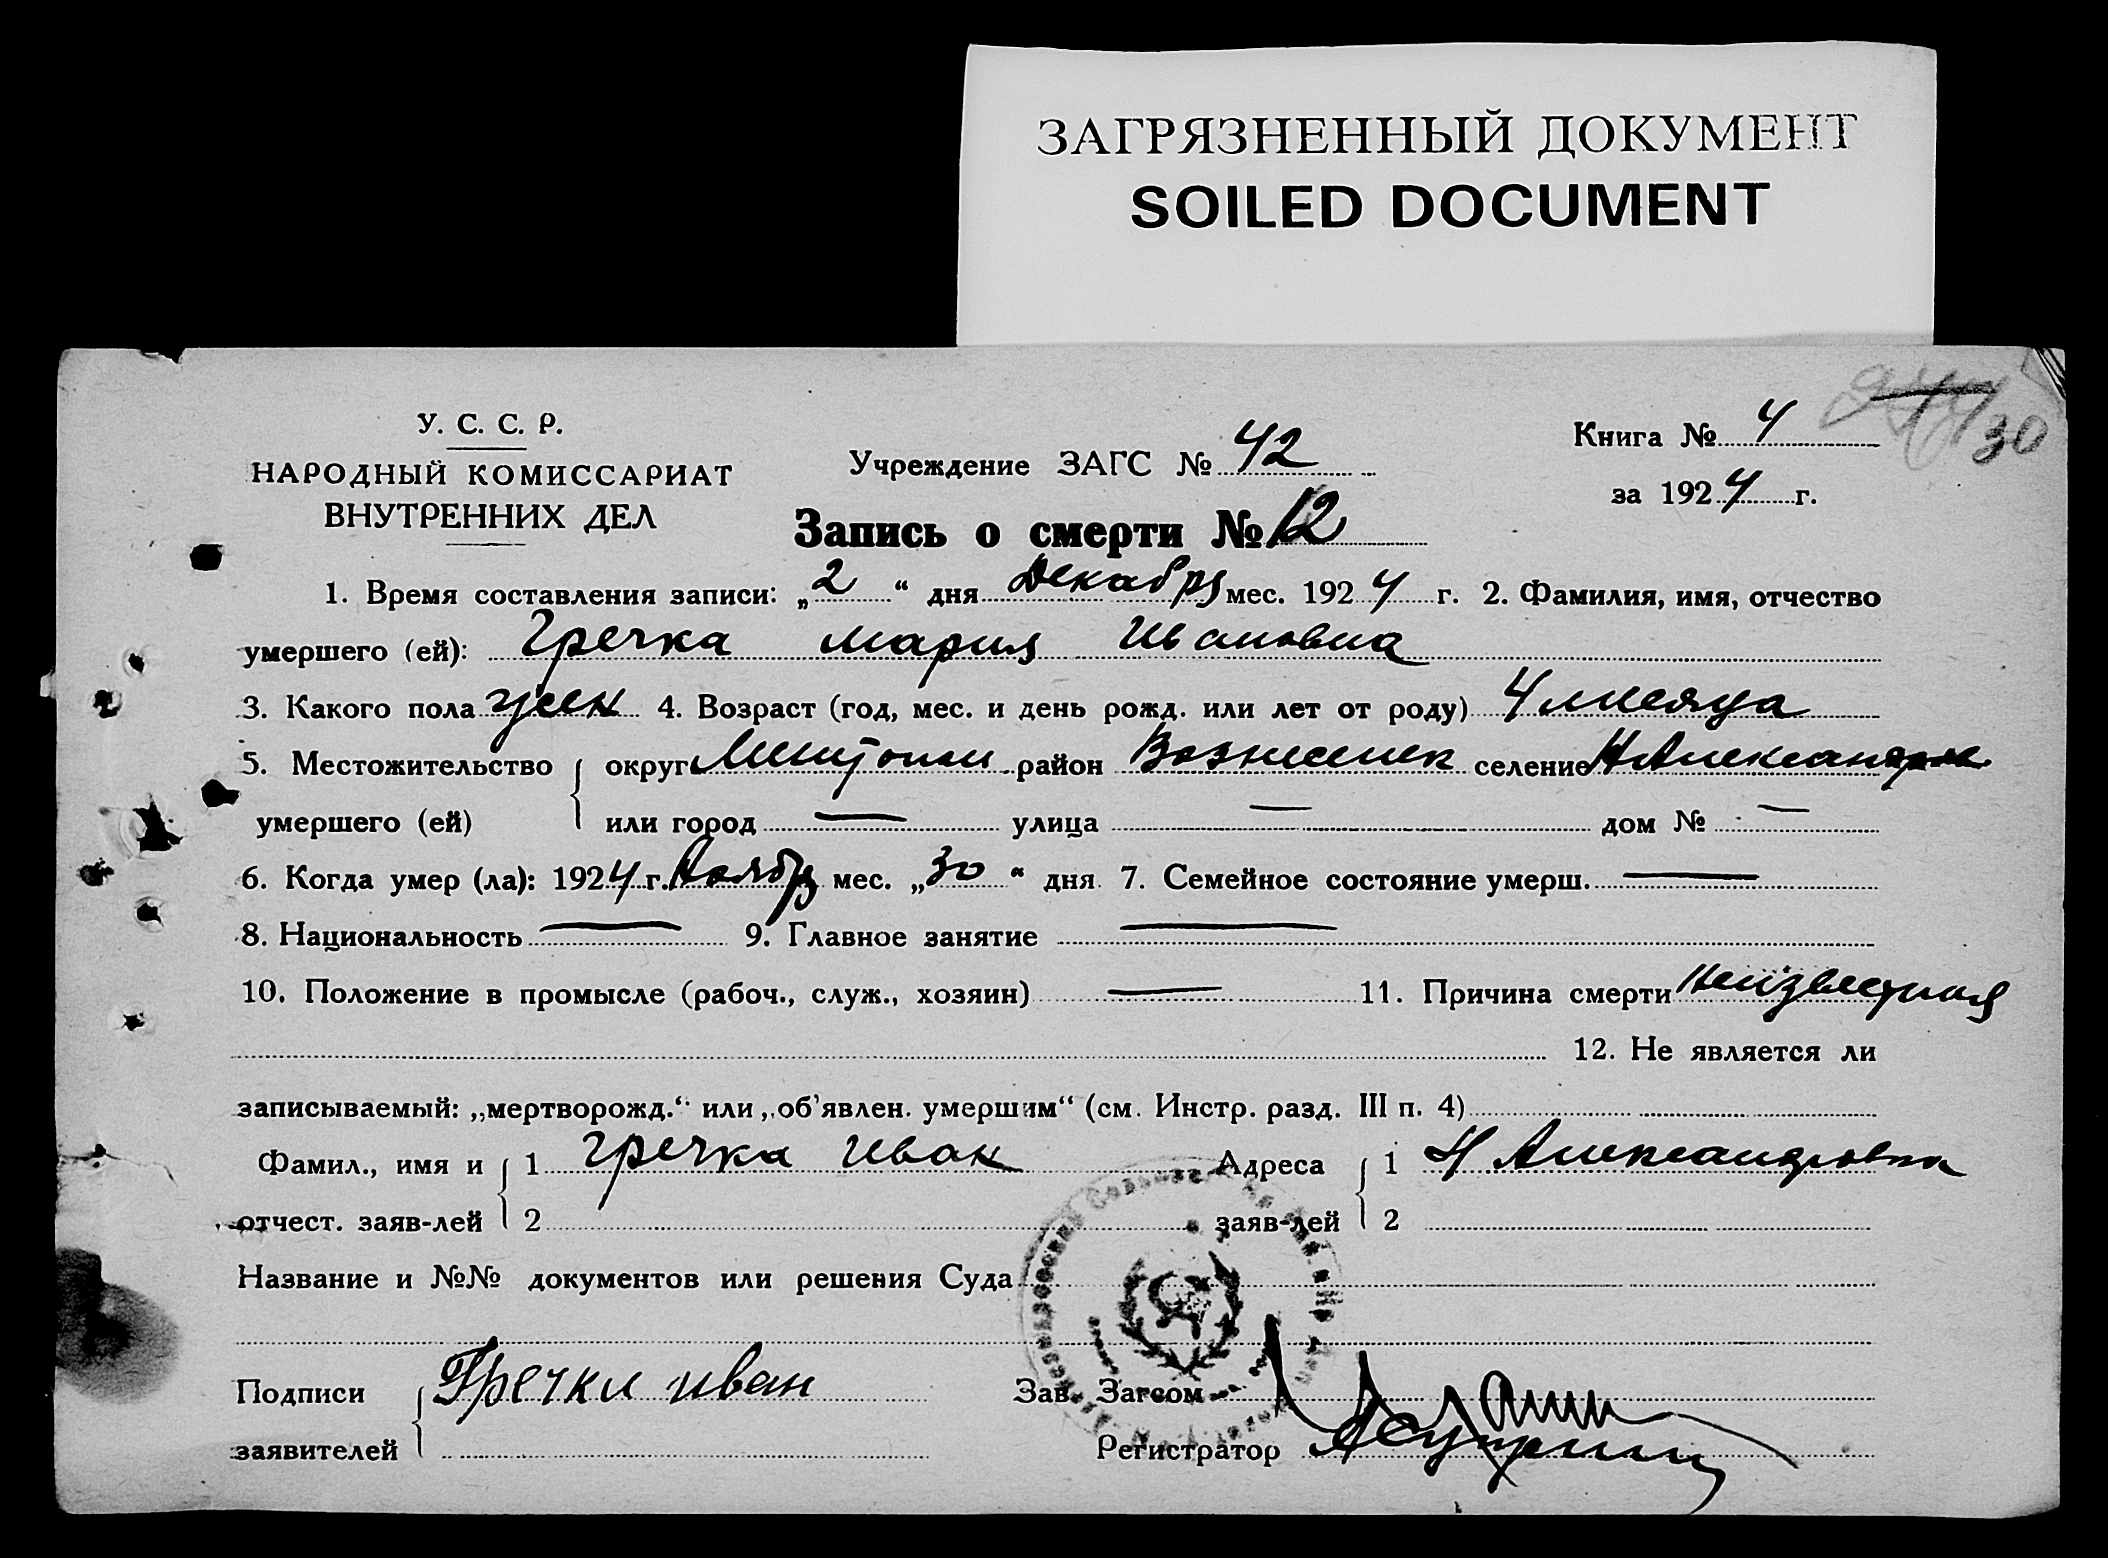 ЗАГРЯЗНЕННЫЙ ДОКУМЕНТ
SOILED DOCUMENT
30
У. С. С. Р.
НАРОДНЫЙ КОМИССАРИАТ
ВНУТРЕННИХ ДЕЛ
Учреждение ЗАГС № 42
Книга № 4
за 1924 г.
Запись о смерти № 12
1. Время составления записи: „2“ дня Декабря мес. 1924 г. 2. Фамилия, имя, отчество
умершего (ей): Гречка Мария Ивановна
3. Какого пола жен 4. Возраст (год, мес. и день рожд. или лет от роду) 4 месяца
5. Местожительство округ район Вознесенск селение Н Александров
умершего (ей) или город — улица — дом № —
6. Когда умер (ла): 1924 г. Ноябр мес. „30“ дня 7. Семейное состояние умерш. —
8. Национальность — 9. Главное занятие —
10. Положение в промысле (рабоч., служ., хозяин) — 11. Причина смерти Неизвестная
12. Не является ли
записываемый: „мертворожд.“ или „об'явлен. умершим“ (см. Инстр. разд. III п. 4)
Фамил., имя и 1 Гречка Иван Адреса 1 Н Александровка
отчест. заяв-лей 2 заяв-лей 2
Название и №№ документов или решения Суда
Подписи Гречки иван Зав. Загсом
заявителей Регистратор